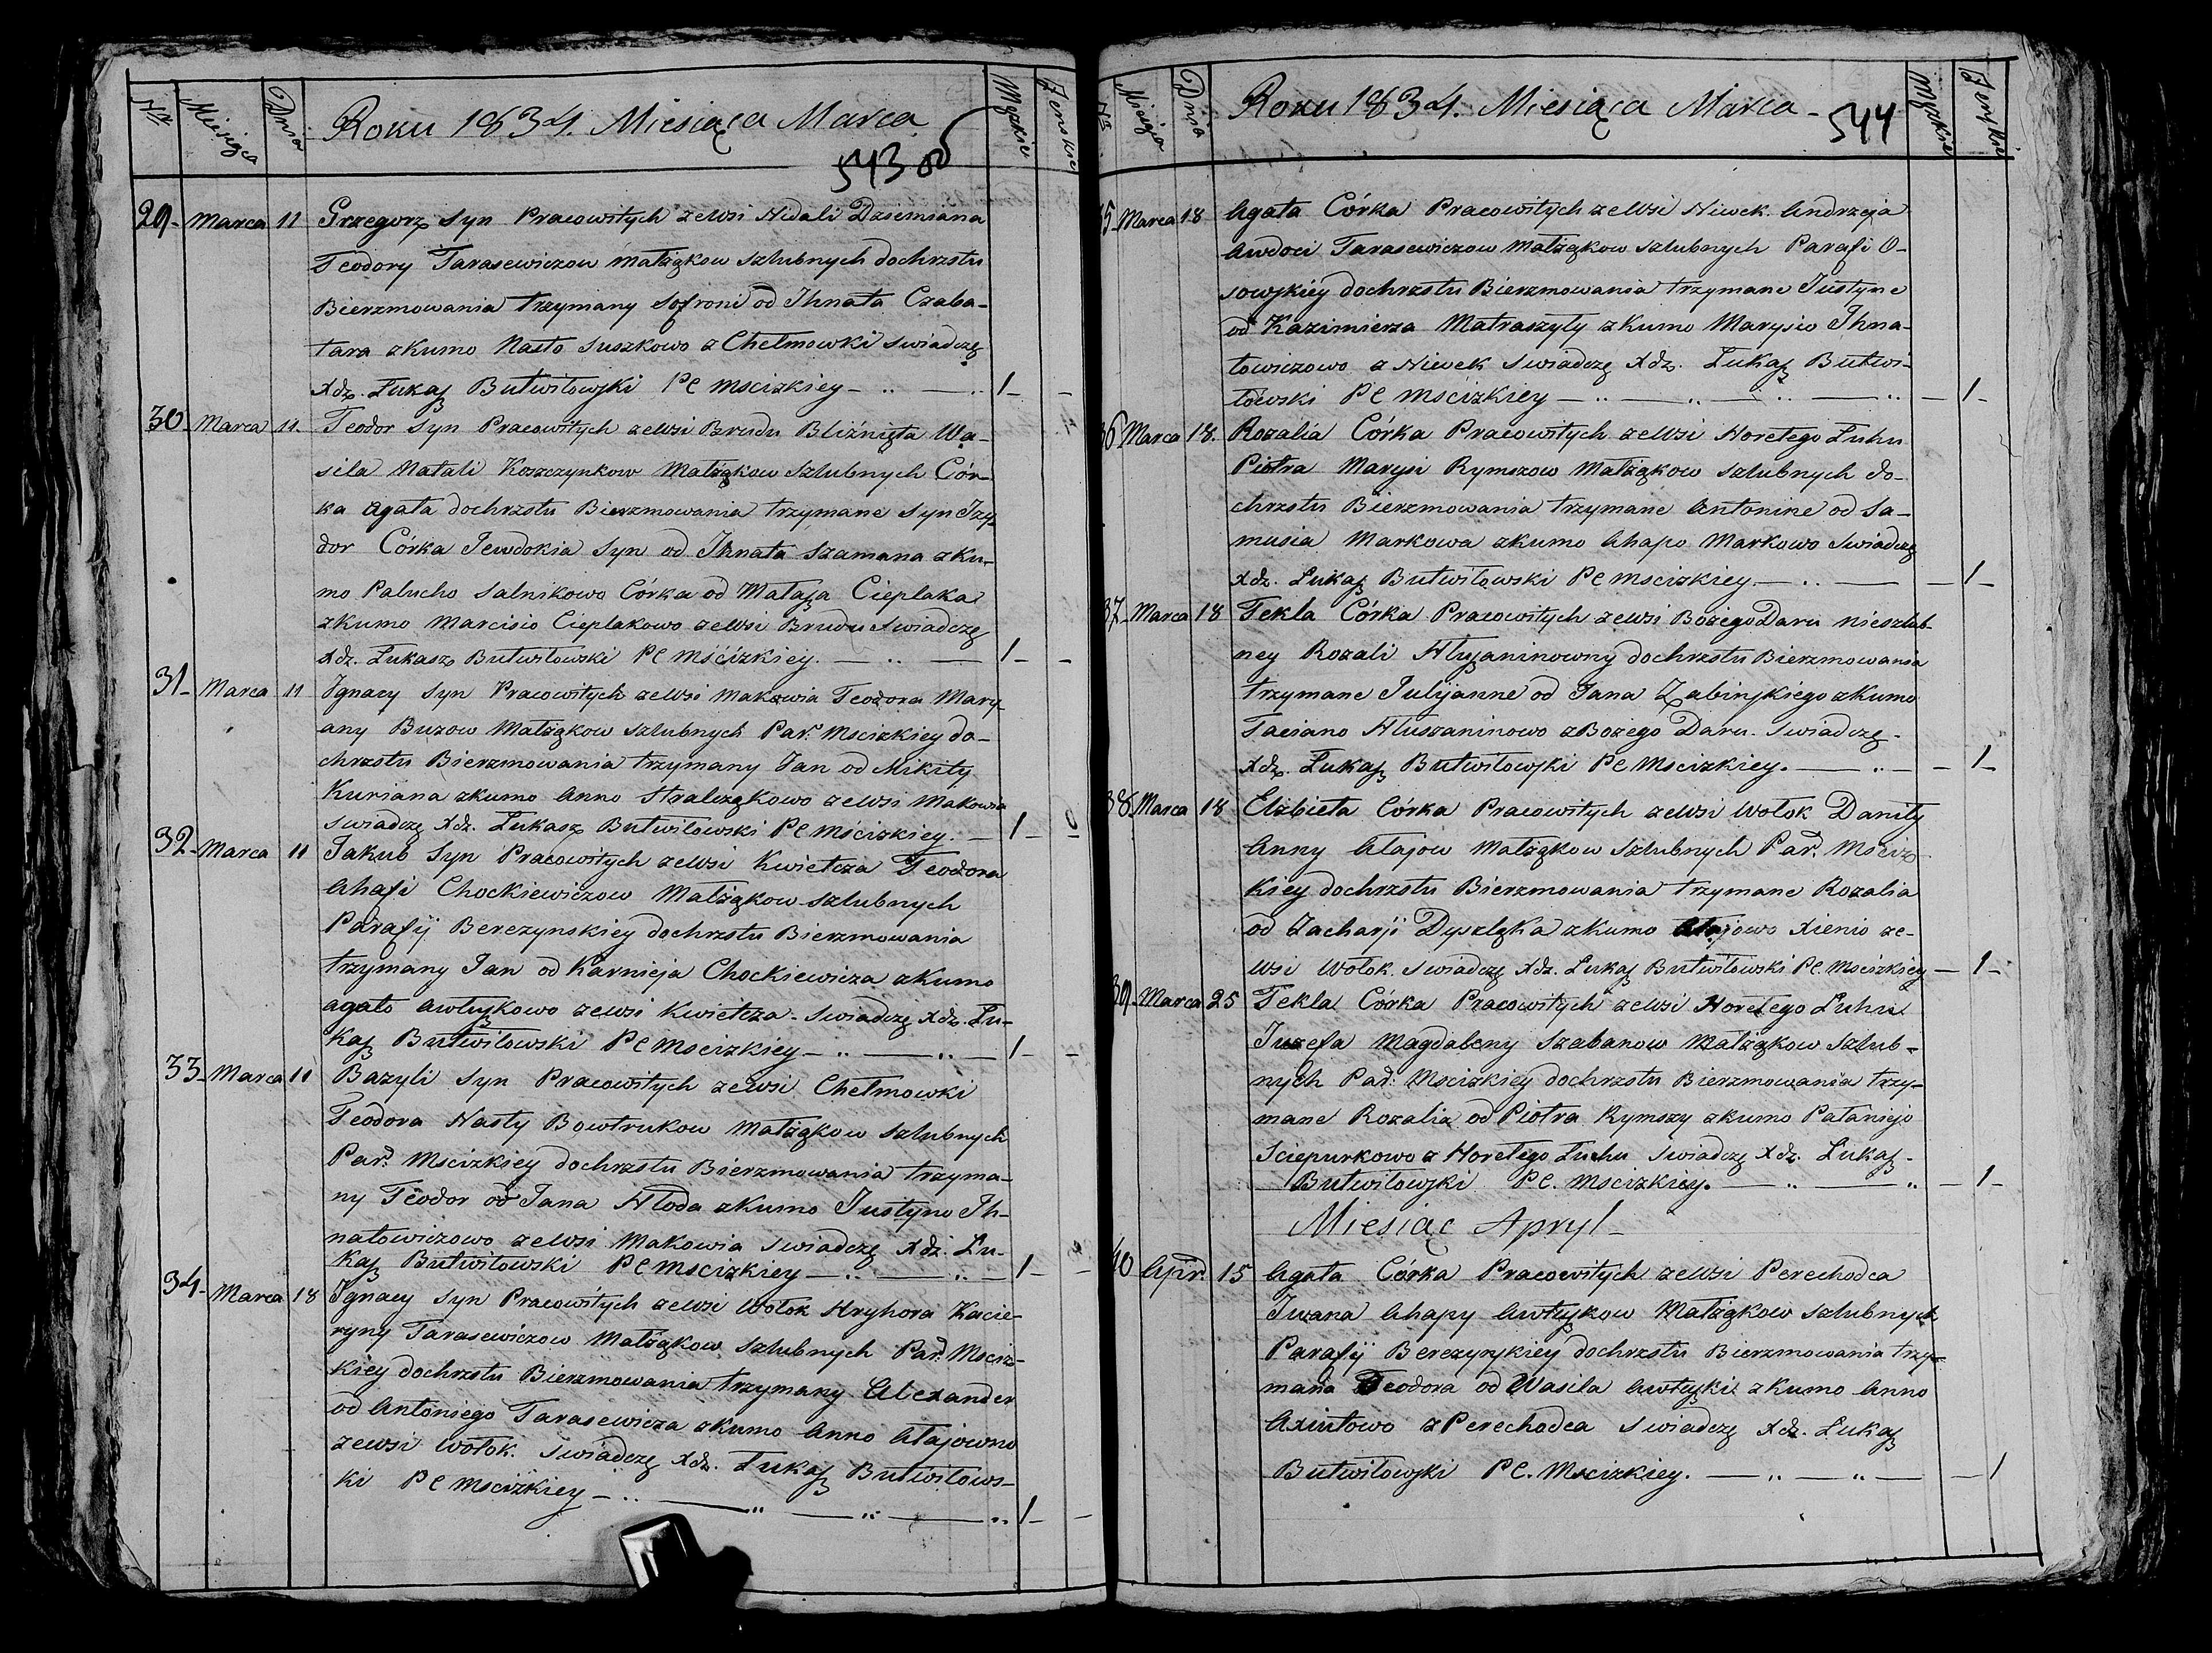 Nr Miesiąca Dnia Roku 1834. Miesiąca Marca Męzkie Żenskie
543 об
29- Marca 11 Grzegorz Syn Pracowitych zewsi Nidali Dziemiana
Teodory Tarasewiczow małżąkow szlubnych dochrzstu
Bierzmowania trzymany Sofroni od Ihnata Czaba-
tara zkumo Nasto Suszkowo z Chełmowki swiadczę
Xdz. Łukasz Butwiłowski PC Mscizkiey - 1 -
30- Marca 11. Teodor Syn Pracowitych zewsi Brudu Bliźnięta Wa-
sila Natali Koszczynkow Małżąkow Szlubnych Cór-
ka Agata dochrzstu Bierzmowania trzymane syn Izy
dor Córka Jewdokia Syn od Ihnata Szamana zku-
mo Palucho Salnikowo Córka od Cieplaka
zkumo Marcisio Cieplakowo zewsi Brudu Swiadczę
Xdz. Łukasz Butwiłowski PC Mścizkiey. 1 -
31- Marca 11 Ignacy Syn Pracowitych zewsi Makowia Teodora Mary-
any Buzow Małżąkow szlubnych Par. Mscizkiey do-
chrzstu Bierzmowania trzymany Jan od Mikity
Kuriana zkumo Anno Stralcząkowo zewsi Makowia
swiadczę Xdz. Łukasz Butwiłowski PC Mscizkiey. - 1 -
32- Marca 11 Jakub Syn Pracowitych zewsi Kwietcza Teodora
Ahafi Chockiewiczow Małżąkow szlubnych
Parafij Berezynskiey dochrzstu Bierzmowania
trzymany Jan od Karnieja Chockiewicza zkumo
agato Awłaszkowo zewsi Kwietcza - Swiadczę Xdz. Łu-
kasz Butwiłowski PC Mscizkiey - 1 -
33- Marca 11 Bazyli Syn Pracowitych zewsi Chełmowki
Teodora Nasty Bowtrukow Małżąkow szlubnych
Par. Mscizkiey dochrzstu Bierzmowania trzyma-
ny Teodor od Jana Hłoda zkumo Justyno Ih-
natowiczowo zewsi Makowia swiadczę Xdz. Łu-
kasz Butwiłowski PC Mscizkiey - 1 -
34- Marca 18 Ignacy Syn Pracowitych zewsi Wołok Hryhora Kacie-
ryny Tarasewiczow Małżąkow szlubnych Par. Msciz-
kiey dochrzstu Bierzmowania trzymany Alexander
od Antoniego Tarasewicza zkumo Anno Atajowno
zewsi Wołok. Swiadczę Xdz. Łukasz Butwiłows-
ki PC Mscizkiey - 1 -
Nr Miesiąca Dnia Roku 1834. Miesiąca Marca - 544 Męzkie Żenskie
35- Marca 18 Agata Córka Pracowitych zewsi Niwek. Andrzeja
Awdoci Tarasewiczow Małżąkow szlubnych Parafi O-
sowskiey dochrzstu Bierzmowania trzymane Justyne
od Kazimierza Matraszyły zkumo Marysio Ihna-
towiczowo z Niwek Swiadczę Xdz. Łukasz Butwi-
łowski PC Mscizkiey - 1 -
36 Marca 18. Rozalia Córka Pracowitych zewsi Horełego Łuhu
Piotra Marysi Rymszow Małżąkow szlubnych do-
chrzstu Bierzmowania trzymane Antonine od Sa-
musia Markowa zkumo Ahapo Markowo Swiadczę
Xdz. Łukasz Butwiłowski PC Mscizkiey. - 1 -
37- Marca 18 Tekla Córka Pracowitych zewsi Bożego Daru nieszlub-
ney Rozali Hłuszaninowny dochrzstu Bierzmowania
trzymane Julijanne od Jana Zabinskiego zkumo
Taciano Hłuszaninowo z Bożego Daru. Swiadczę -
Xdz. Łukasz Butwiłowski PC Mscizkiey. - 1 -
38. Marca 18 Elżbieta Córka Pracowitych zewsi Wołok Daniły
Anny Atajow Małżąkow szlubnych Par. Msciz
kiey dochrzstu Bierzmowania trzymane Rozalia
od Zacharji Dyszlęka zkumo Atajowo Xienio ze-
wsi Wołok. Swiadczę Xdz. Łukasz Butwiłowski PC. Mscizkiey - 1 -
39- Marca 25 Tekla Córka Pracowitych zewsi Horełego Łuhu
Juzefa Magdaleny Szabanow Małżąkow szlub-
nych Par: Mscizkiey dochrzstu Bierzmowania trzy-
mane Rozalia od Piotra Rymszy zkumo Pałaniejo
Sciepurkowo z Horełego Łuhu swiadczę Xdz. Łukasz -
Butwiłowski PC. Mscizkiey. - 1 -
Miesiąc Apryl -
40 Apr. 15 Agata Córka Pracowitych zewsi Perechodca
Iwana Ahapy Awłaszkow Małżąkow szlubnych
Parafij Berezynskiey dochrzstu Bierzmowania trzy-
mana Teodora od Wasila zkumo Anno
Axiutowo z Perechodca swiadczę Xdz. Łukasz
Butwiłowski PC. Mscizkiey. - 1